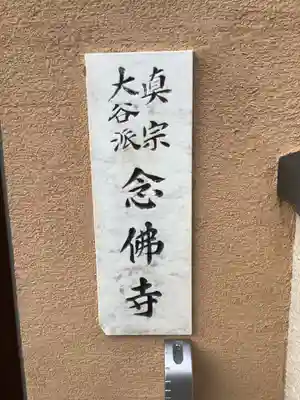 真宗
大谷派
念佛寺